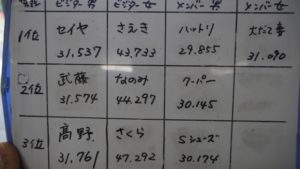 ビジター 男 ビジター 女 メンバー 男 メンバー 女
1位 セイヤ さえき ハットリ
31.537 43.733 29.855 31.090
2位 武藤 なのみ クーパー
31.574 44.297 30.145
3位 髙野 さくら Sシューズ
31.761 47.292 30.174